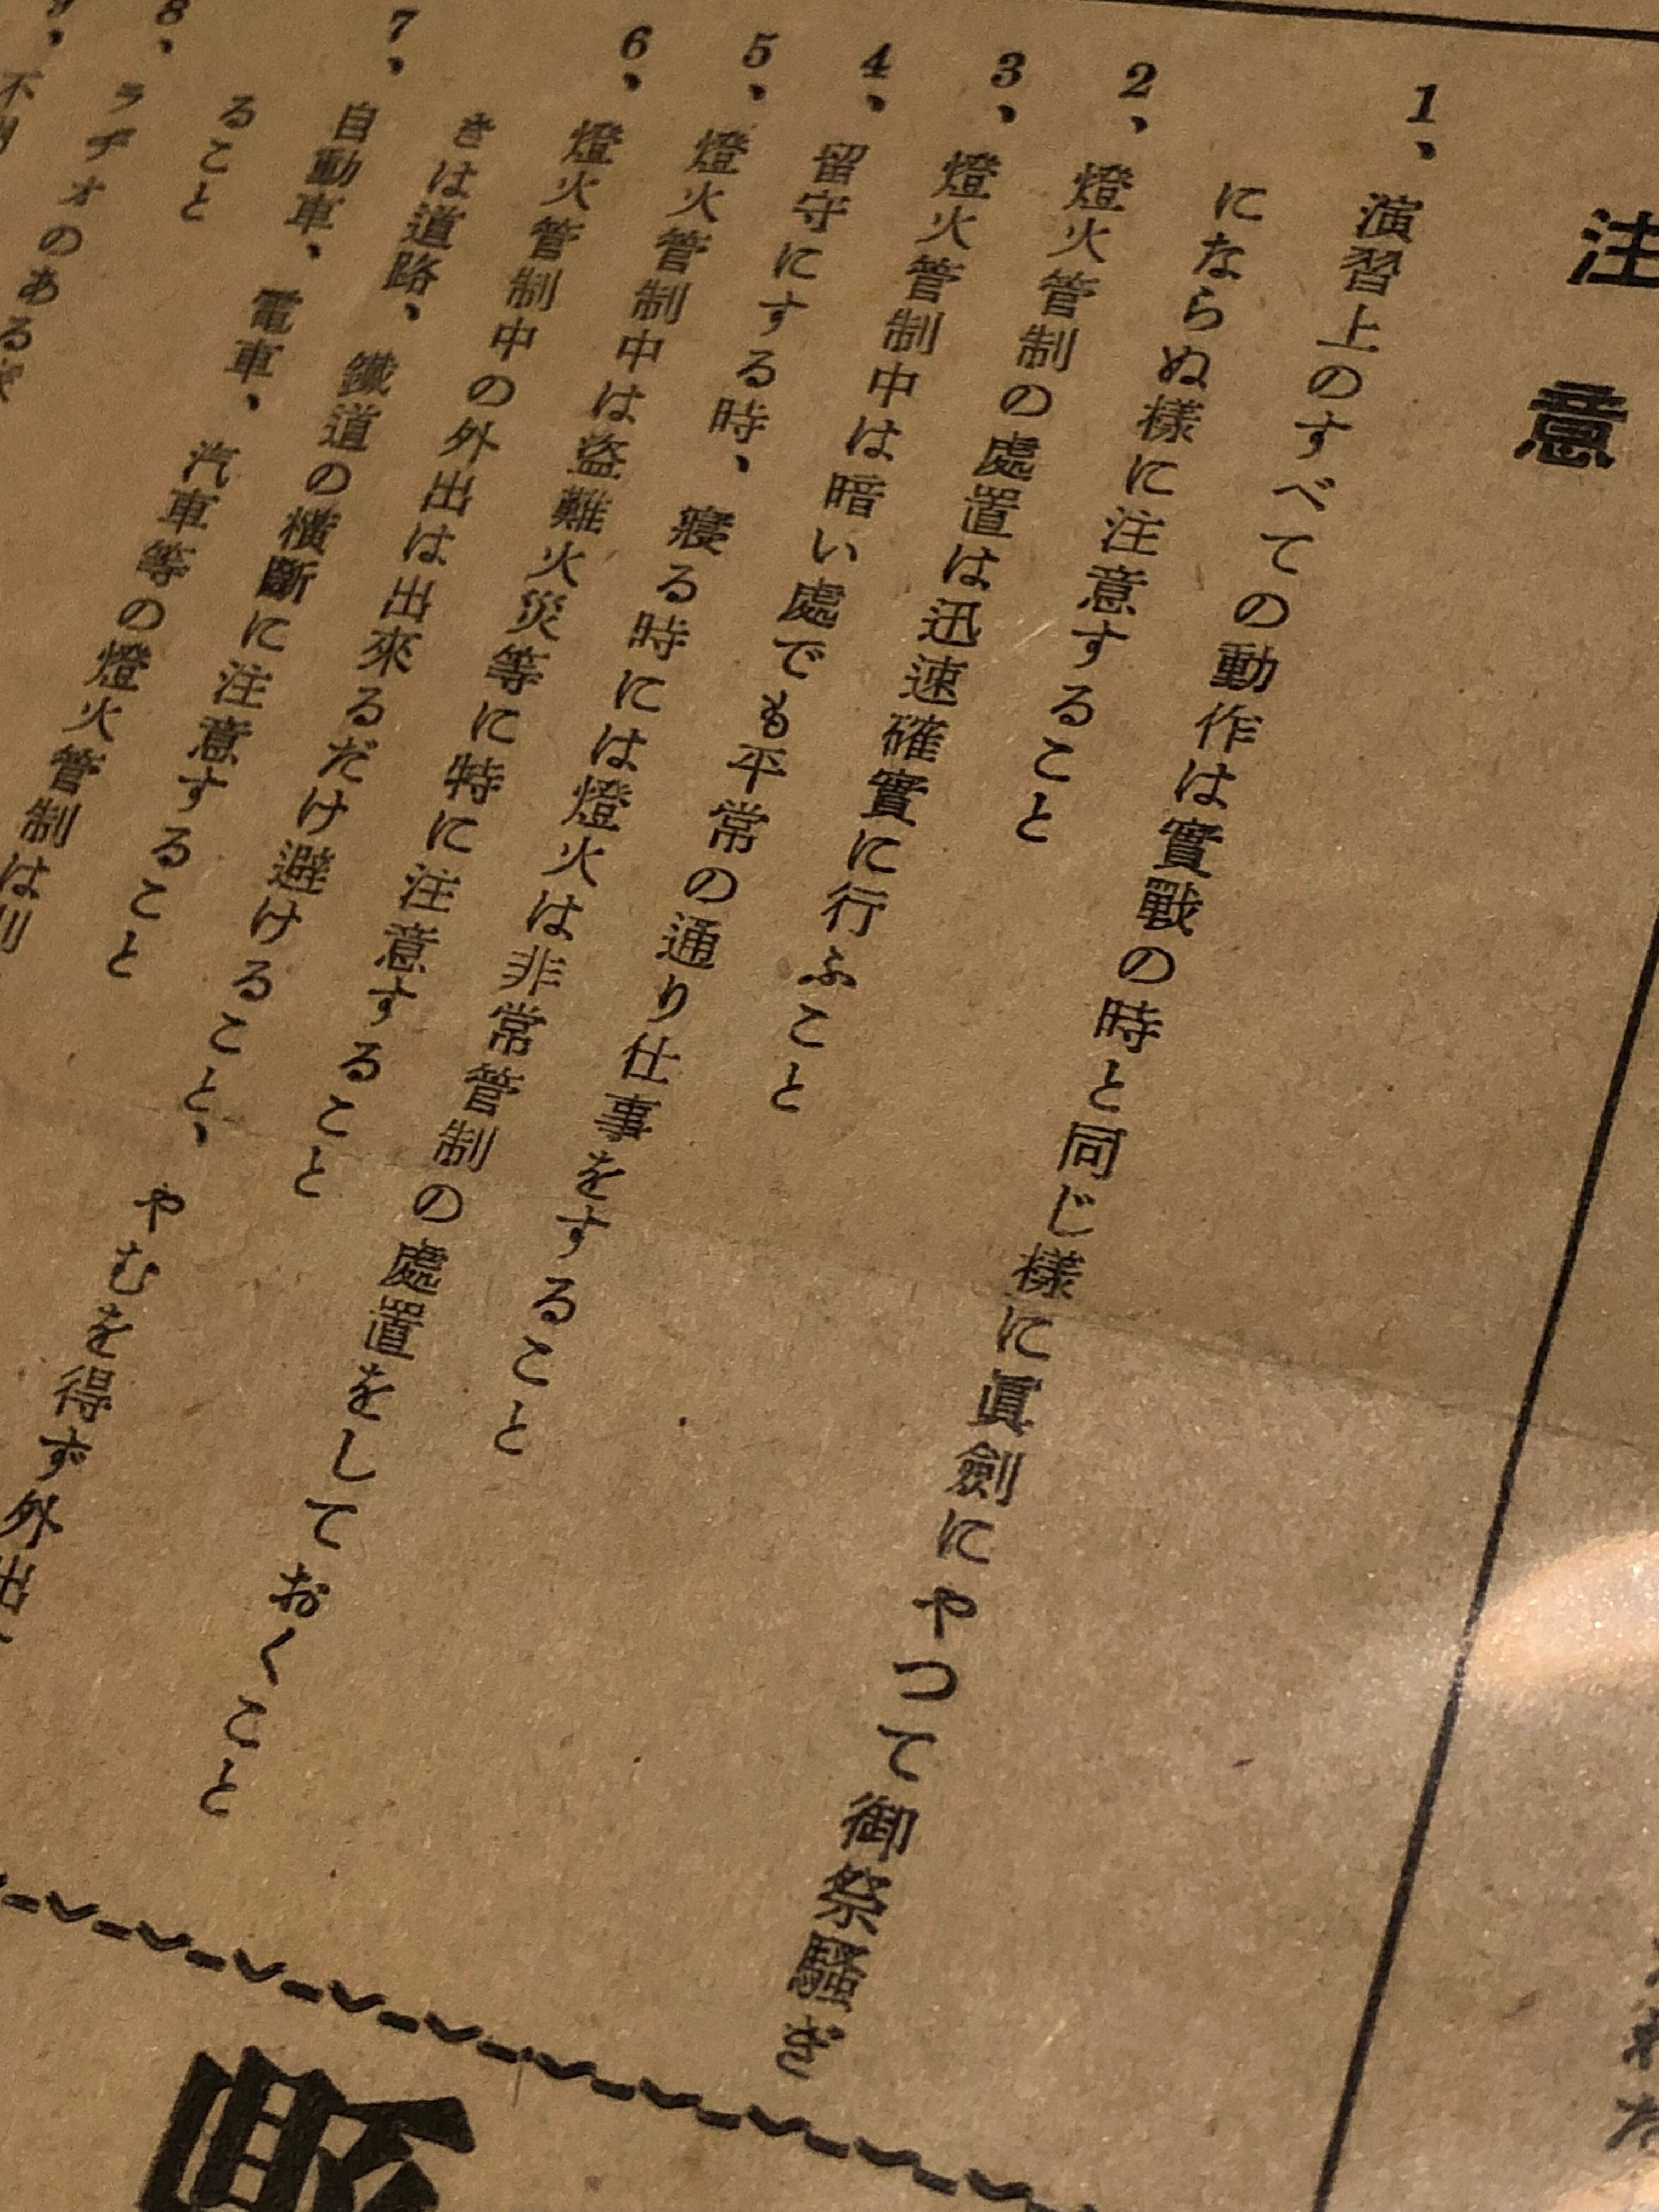 注意
1、演習上のすべての動作は實戰の時と同じ樣に眞劍にやつて御祭騷ぎ
にならぬ樣に注意すること
2、燈火管制の處置は迅速確實に行ふこと
3、燈火管制中は暗い處でも平常の通り仕事をすること
4、留守にする時、寢る時には燈火は非常管制の處置をしておくこと
5、燈火管制中は盜難火災等に特に注意すること
6、燈火管制中の外出は出來るだけ避けること、やむを得ず外出
きは道路、鐵道の橫斷に注意すること
7、自動車、電車、汽車等の燈火管制は別
ること
8、ラヂオのある家
9、不